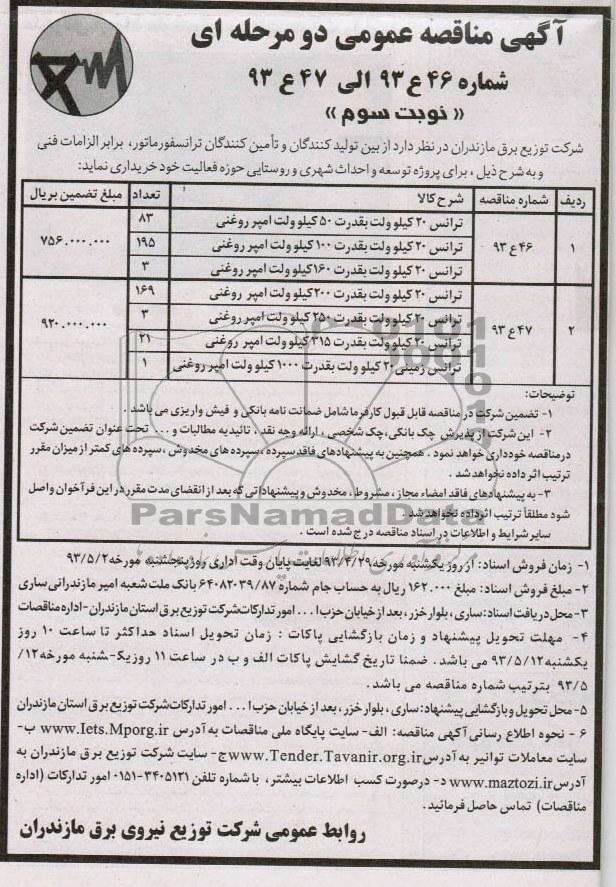 آگهی مناقصه عمومی دو مرحله ای
شماره ۴۶ ع ۹۳ الی ۴۷ ع ۹۳
« نوبت سوم »
شرکت توزیع برق مازندران در نظر دارد از بین تولید کنندگان و تأمین کنندگان ترانسفورماتور، برابر الزامات فنی
و به شرح ذیل ، برای پروژه توسعه و احداث شهری و روستایی حوزه فعالیت خود خریداری نماید:
ردیف شماره مناقصه شرح کالا تعداد مبلغ تضمین بریال
۱ ۴۶ ع ۹۳ ترانس ۲۰ کیلو ولت بقدرت ۵۰ کیلو ولت امپر روغنی ۸۳ ۷۵۶.۰۰۰.۰۰۰
ترانس ۲۰ کیلو ولت بقدرت ۱۰۰ کیلو ولت امپر روغنی ۱۹۵
ترانس ۲۰ کیلو ولت بقدرت ۱۶۰کیلو ولت امپر روغنی ۳
۲ ۴۷ ع ۹۳ ترانس ۲۰ کیلو ولت بقدرت ۲۰۰کیلو ولت امپر روغنی ۱۶۹ ۹۲۰.۰۰۰.۰۰۰
ترانس ۲۰ کیلو ولت بقدرت ۲۵۰ کیلو ولت امپر روغنی ۳
ترانس ۲۰ کیلو ولت بقدرت ۳۱۵ کیلو ولت امپر روغنی ۲۱
ترانس زمینی ۲۰ کیلو ولت بقدرت ۱۰۰۰ کیلو ولت امپر روغنی ۱
توضیحات:
۱- تضمین شرکت در مناقصه قابل قبول کارفرما شامل ضمانت نامه بانکی و فیش واریزی می باشد .
۲- این شرکت از پذیرش چک بانکی، چک شخصی ، ارائه وجه نقد ، تائیدیه مطالبات و ... تحت عنوان تضمین شرکت
در مناقصه خودداری خواهد نمود . همچنین به پیشنهادهای فاقد سپرده ، سپرده های مخدوش ، سپرده های کمتر از میزان مقرر
ترتیب اثر داده نخواهد شد .
۳- به پیشنهادهای فاقد امضاء مجاز ، مشروط ، مخدوش و پیشنهاداتی که بعد از انقضای مدت مقرر در این فرآخوان واصل
شود مطلقاً ترتیب اثر داده نخواهد شد .
سایر شرایط و اطلاعات در اسناد مناقصه درج شده است .
ParsNamadData
۱- زمان فروش اسناد: از روز یکشنبه مورخه ۹۳/۴/۲۹ لغایت پایان وقت اداری روز پنجشنبه مورخه ۹۳/۵/۲
۲- مبلغ فروش اسناد: مبلغ ۱۶۲.۰۰۰ ریال به حساب جام شماره ۶۴۰۸۲۰۳۹/۸۷ بانک ملت شعبه امیر مازندرانی ساری
۳- محل دریافت اسناد: ساری ، بلوار خزر ، بعد از خیابان حزب ا ... امور تدارکات شرکت توزیع برق استان مازندران - اداره مناقصات
۴- مهلت تحویل پیشنهاد و زمان بازگشایی پاکات : زمان تحویل اسناد حداکثر تا ساعت ۱۰ روز
یکشنبه ۹۳/۵/۱۲ می باشد . ضمنا تاریخ گشایش پاکات الف و ب در ساعت ۱۱ روزیک-شنبه مورخه ۱۲/
۹۳/۵ بترتیب شماره مناقصه می باشد .
۵- محل تحویل و بازگشایی پیشنهاد: ساری ، بلوار خزر ، بعد از خیابان حزب ا ... امور تدارکات شرکت توزیع برق استان مازندران
۶ - نحوه اطلاع رسانی آگهی مناقصه: الف - سایت پایگاه ملی مناقصات به آدرس www.Iets.Mporg.ir ب-
سایت معاملات توانیر به آدرس www.Tender.Tavanir.org.ir ج- سایت شرکت توزیع برق مازندران به
آدرس www.maztozi.ir د- درصورت کسب اطلاعات بیشتر ، با شماره تلفن ۳۴۰۵۱۲۱-۰۱۵۱ امور تدارکات (اداره
مناقصات) تماس حاصل فرمائید.
روابط عمومی شرکت توزیع نیروی برق مازندران